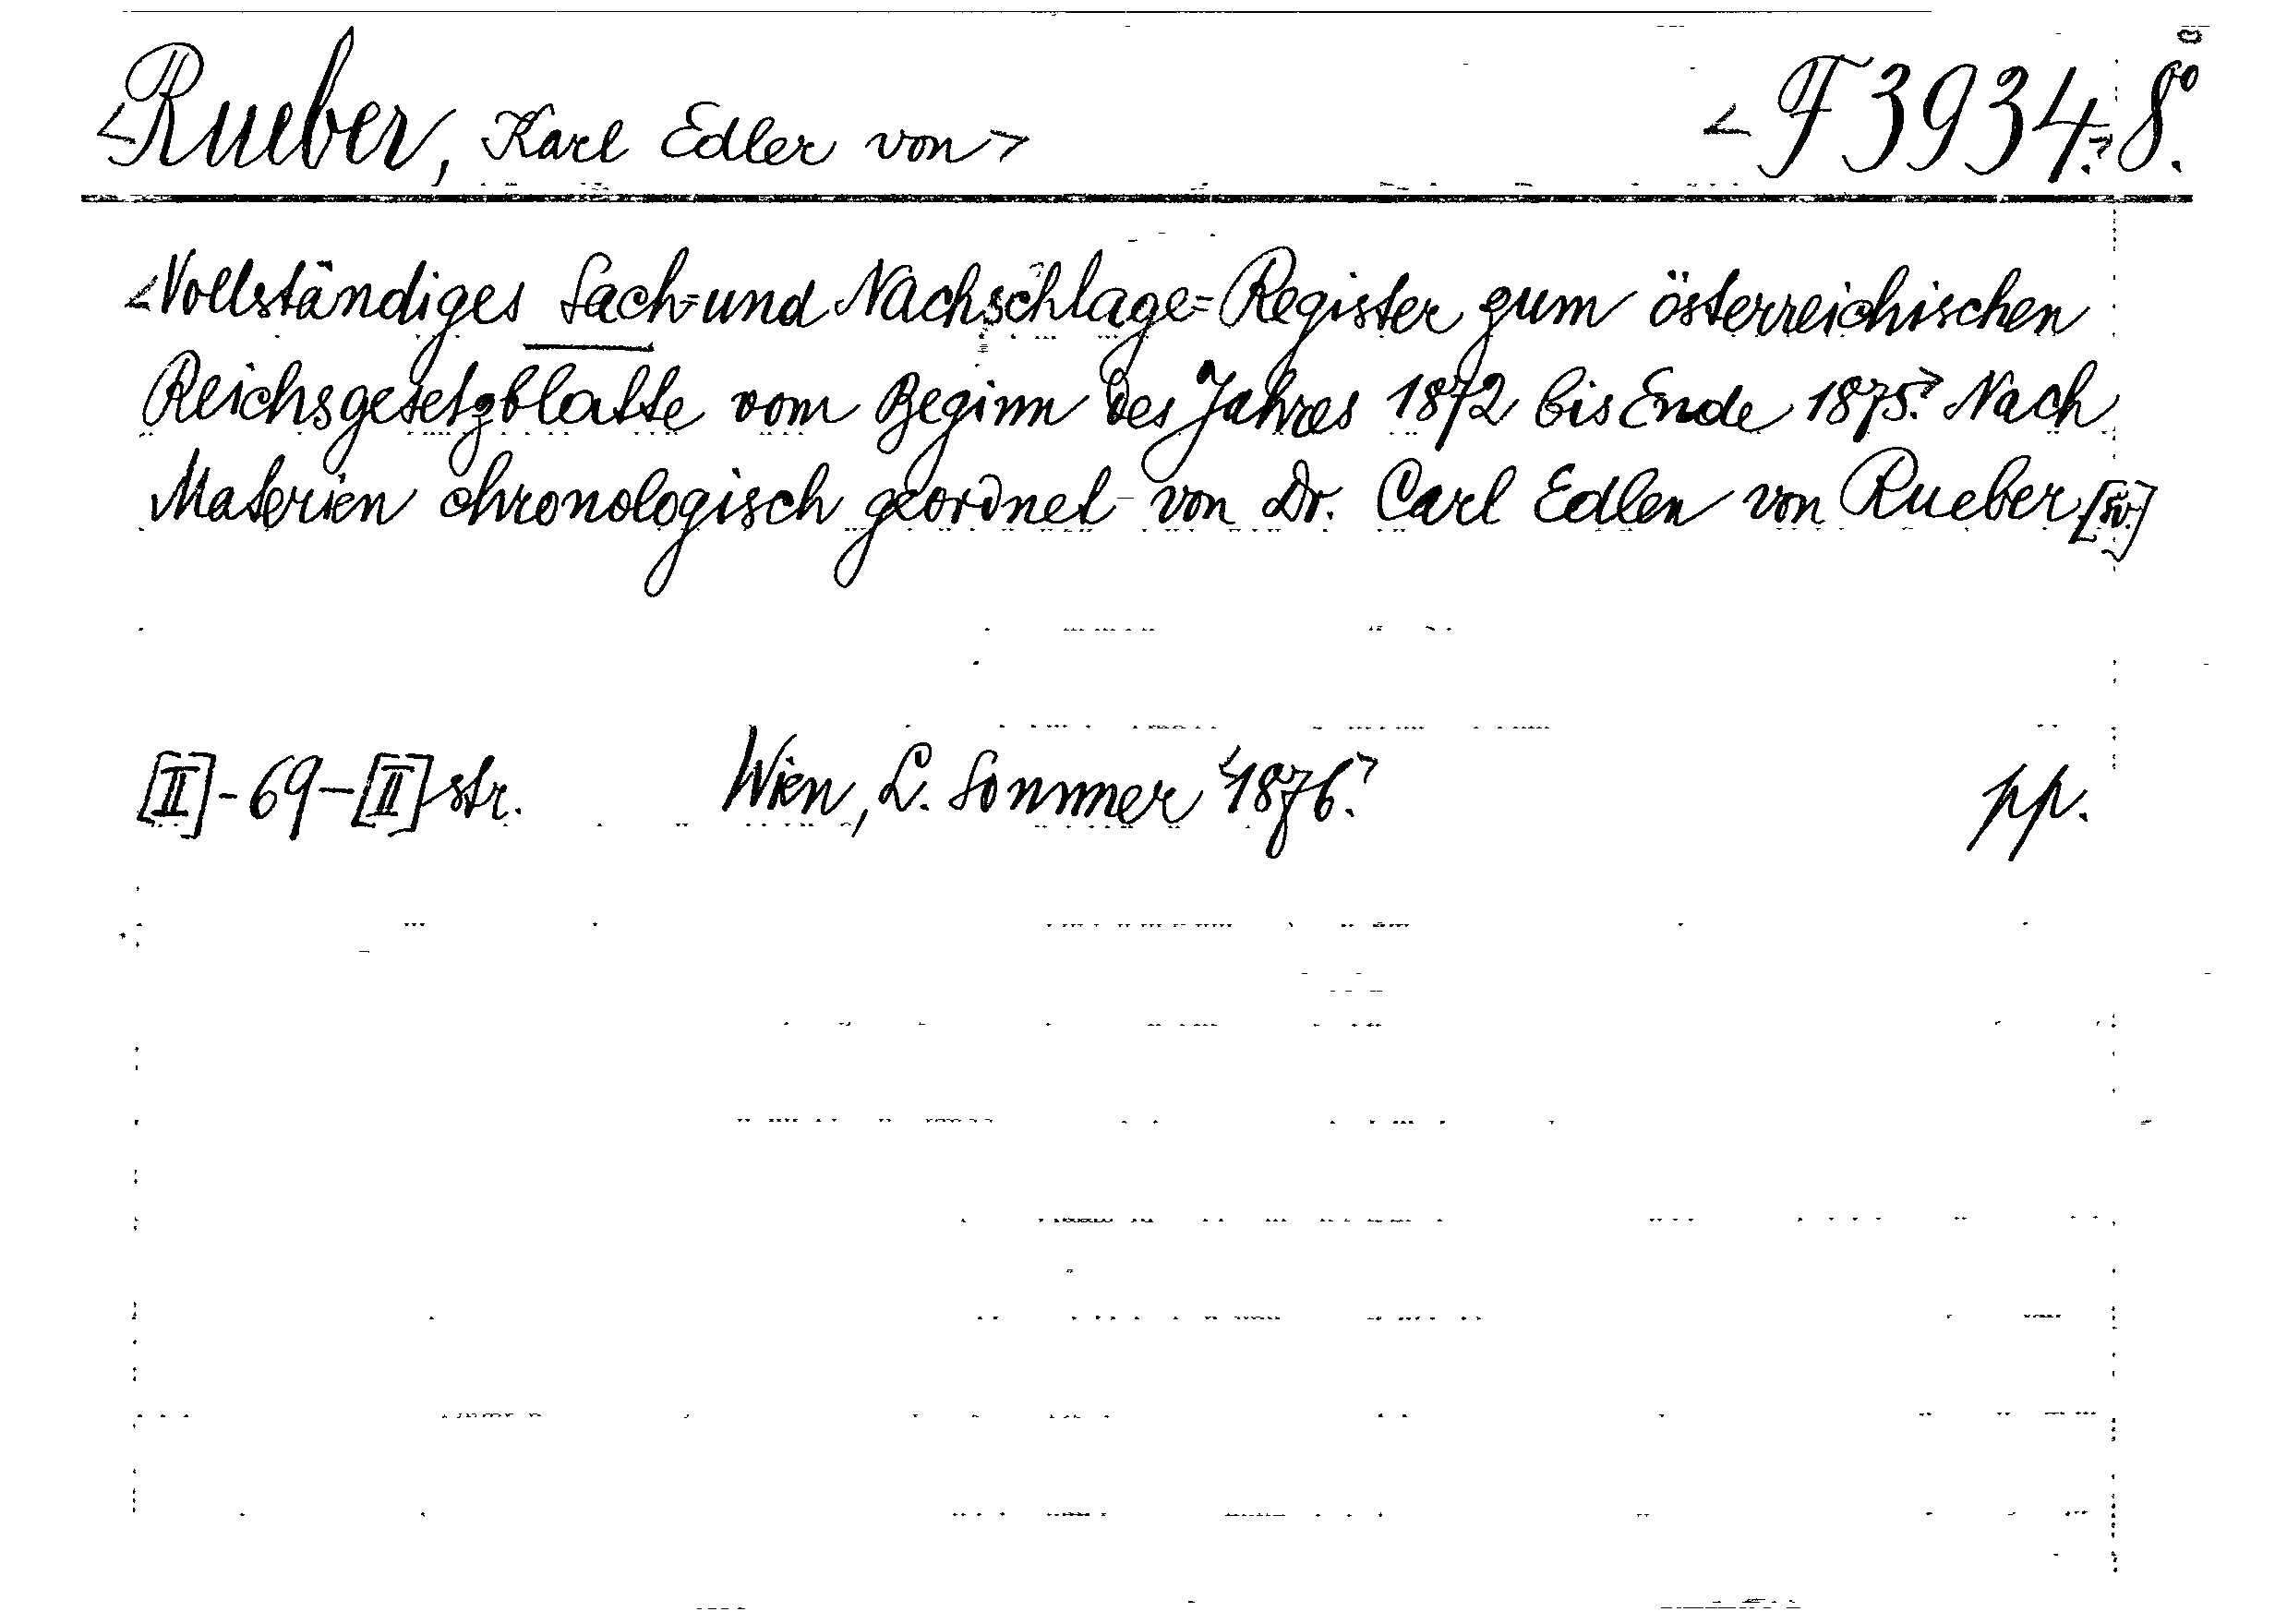 <Rueber, Karl Edler von> <F 3934.> 8º.
<Vollständiges Sach= und Nachschlage=Register zum österreichischen
Reichsgesetzblatte vom Beginn des Jahres 1872 bis Ende 1875.> Nach
Materien chronologisch geordnet von Dr. Carl Edlen von Rueber.
[II]-69-[II] str. Wien, L. Sommer <1876.> pp.